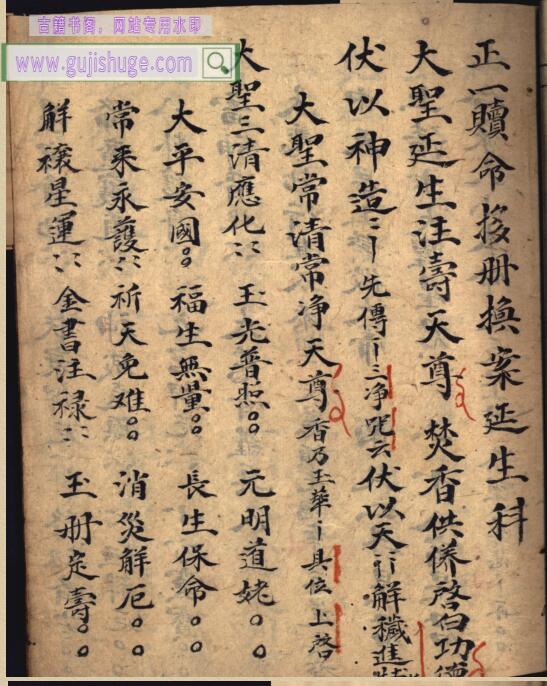 古籍书阁，网站专用水印
www.gujishuge.com
正一贖命掇册换案延生科
大聖延生注壽天尊 焚香供养啓白功德
伏以神造〻丨先傳丨三净咒云伏以天丨丨解穢進
大聖常清常净天尊香乃玉華丨具位 上啓
大聖三清應化〻 玉光普照。。 元明道姥。。
大平安國。。 福生無量。。 長生保命。。
常来永護〻 祈天免难。。 消災解厄。。
解禳星運〻 金書注禄〻 玉册定壽。。